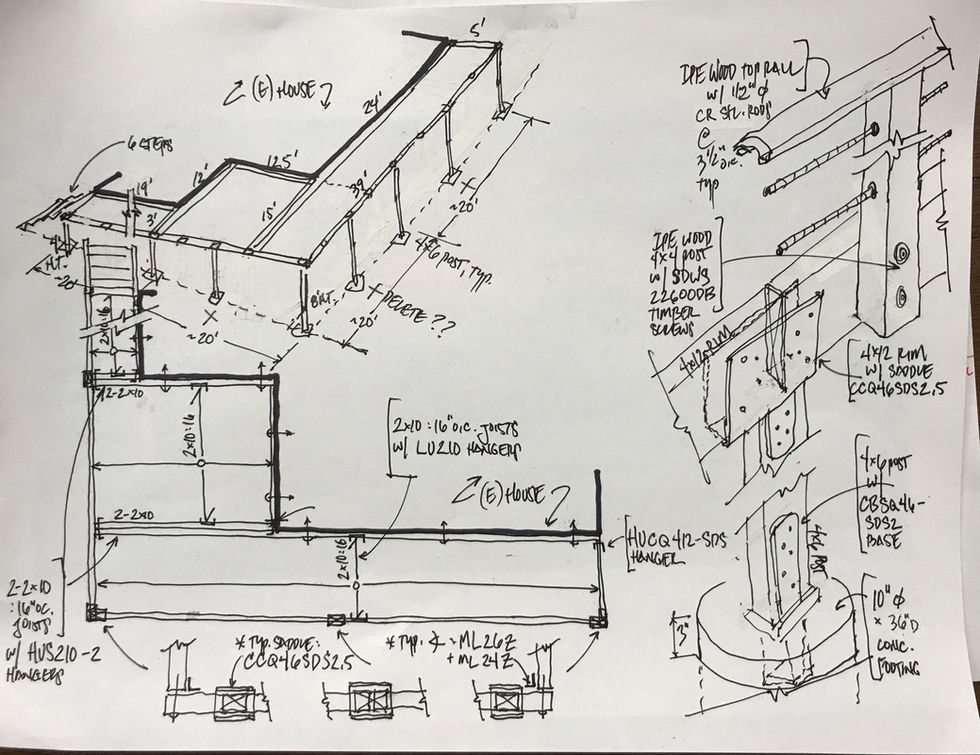 5'
(E) HOUSE
24'
6 STEPS
12'
12.5'
19'
3'
15'
39'
~20'
4x6 POST, TYP.
8' HT.
DELETE ??
~20'
~20'
HT.
~20'
X
X
X
2x10:16
2-2x10
2x10:16
2-2x10
2x10:16"O.C. JOISTS
W/ LU210 HANGERS
(E) HOUSE
2x10:16
HUCQ412-SDS
HANGER
2-2x10
:16"OC.
JOISTS
W/ HUS210-2
HANGERS
* TYP. SADDLE:
CCQ46SDS2.5
* TYP. ∢ = ML26Z
+ ML24Z
IPE WOOD TOP RAIL
W/ 1/2" Ø
CR STL. RODS
@
3 1/2" O.C.
TYP
IPE WOOD
4x4 POST
W/ SDWS
22600DB
TIMBER
SCREWS
4x12 RIM
4x12 RIM
W/ SADDLE
CCQ46SDS2.5
4x6 POST
W/
CBSQ46-
SDS2
BASE
4x6 POST
3"
10" Ø
x 36"D
CONC.
FOOTING